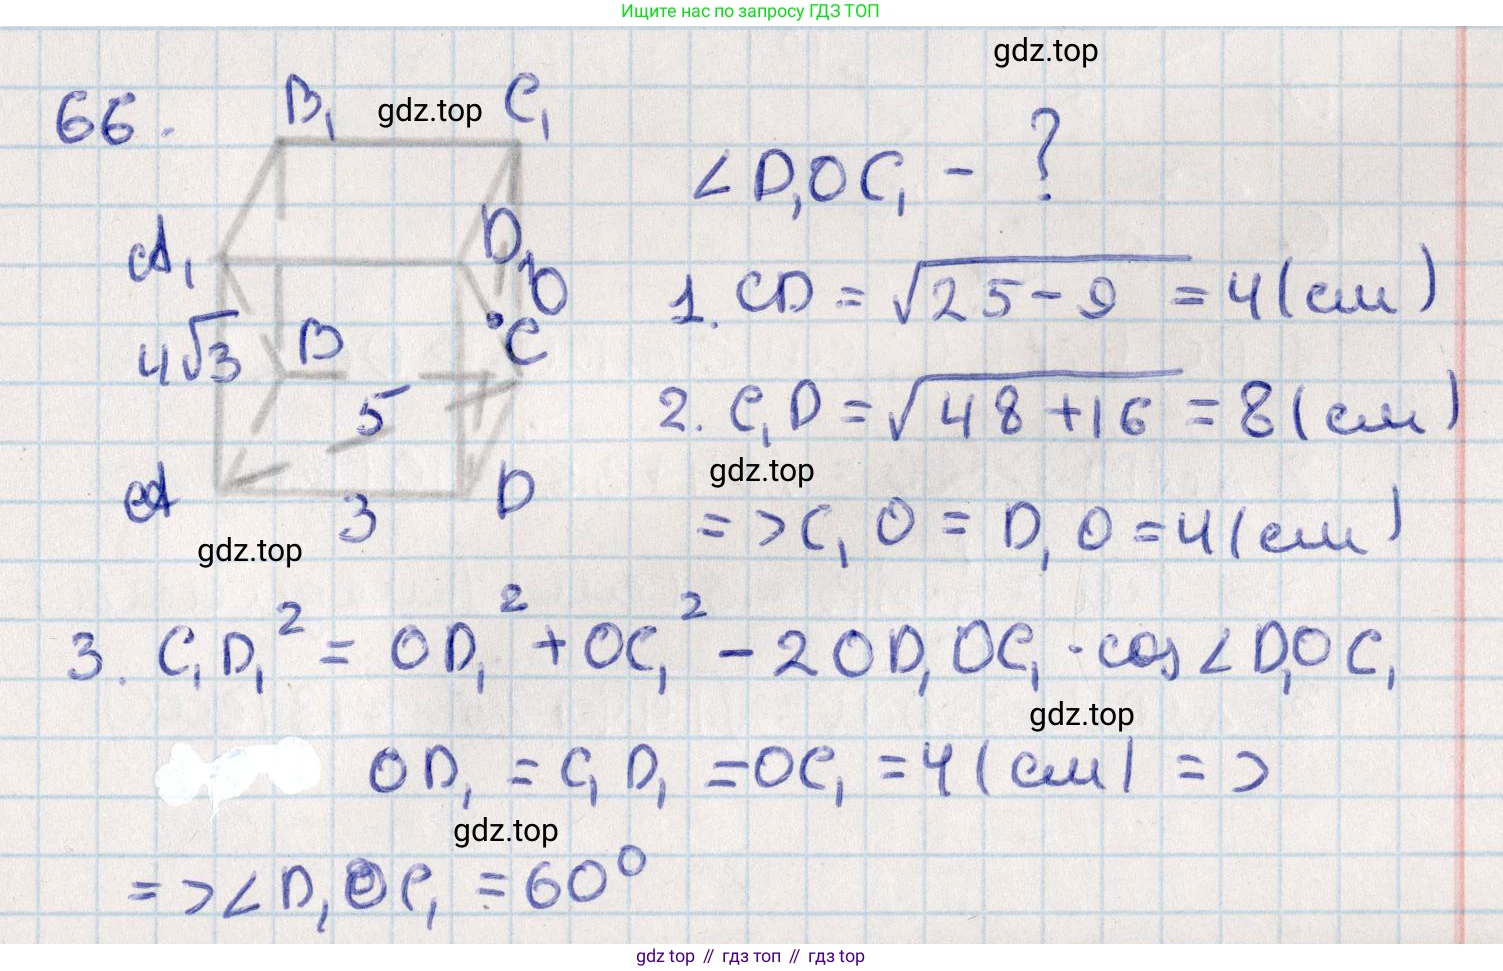 Ищите нас по запросу ГДЗ ТОП
gdz.top
66.
B₁ gdz.top C₁
∠D₁OC₁ - ?
A₁
D₁
O
1. CD = √25-9 = 4(см)
4√3
B
C
5
2. C₁D = √48+16 = 8(см)
gdz.top
A
3
D
=> C₁O = D₁O = 4(см)
gdz.top
3. C₁D₁² = OD₁² + OC₁² - 2OD₁OC₁ · cos∠D₁OC₁
gdz.top
OD₁ = C₁D₁ = OC₁ = 4(см) =>
gdz.top
=> ∠D₁OC₁ = 60⁰
gdz top // гдз топ // гдз top